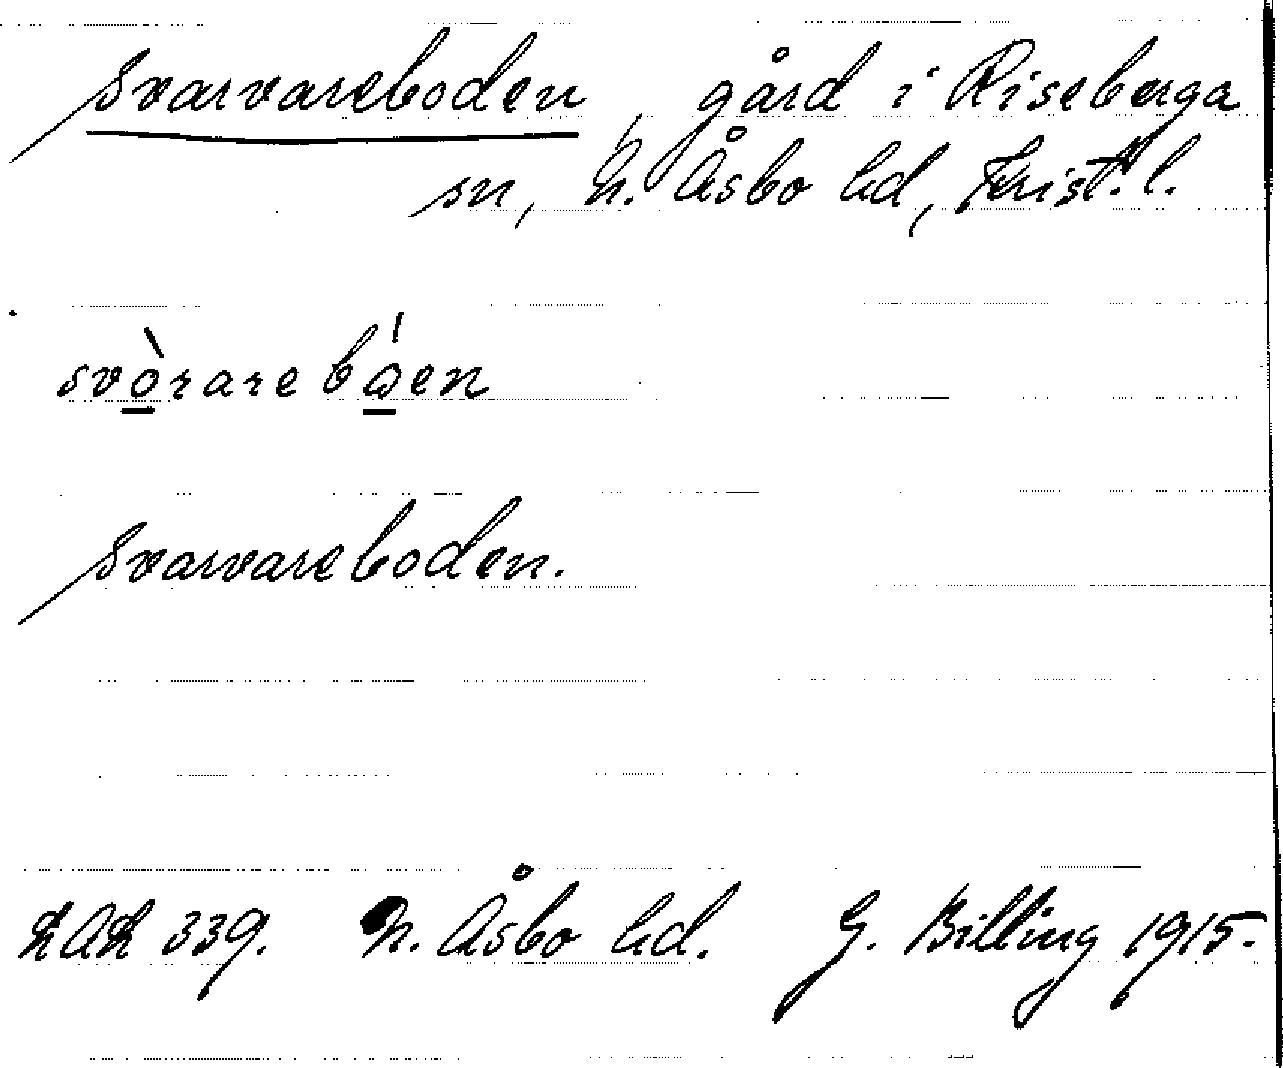 Svarvareboden, gård i Riseberga
sn, N. Åsbo hd, Krist. l.
svò̲rarebó̲en
Svarvareboden.
LAL 339. N. Åsbo hd. G. Billing 1915.